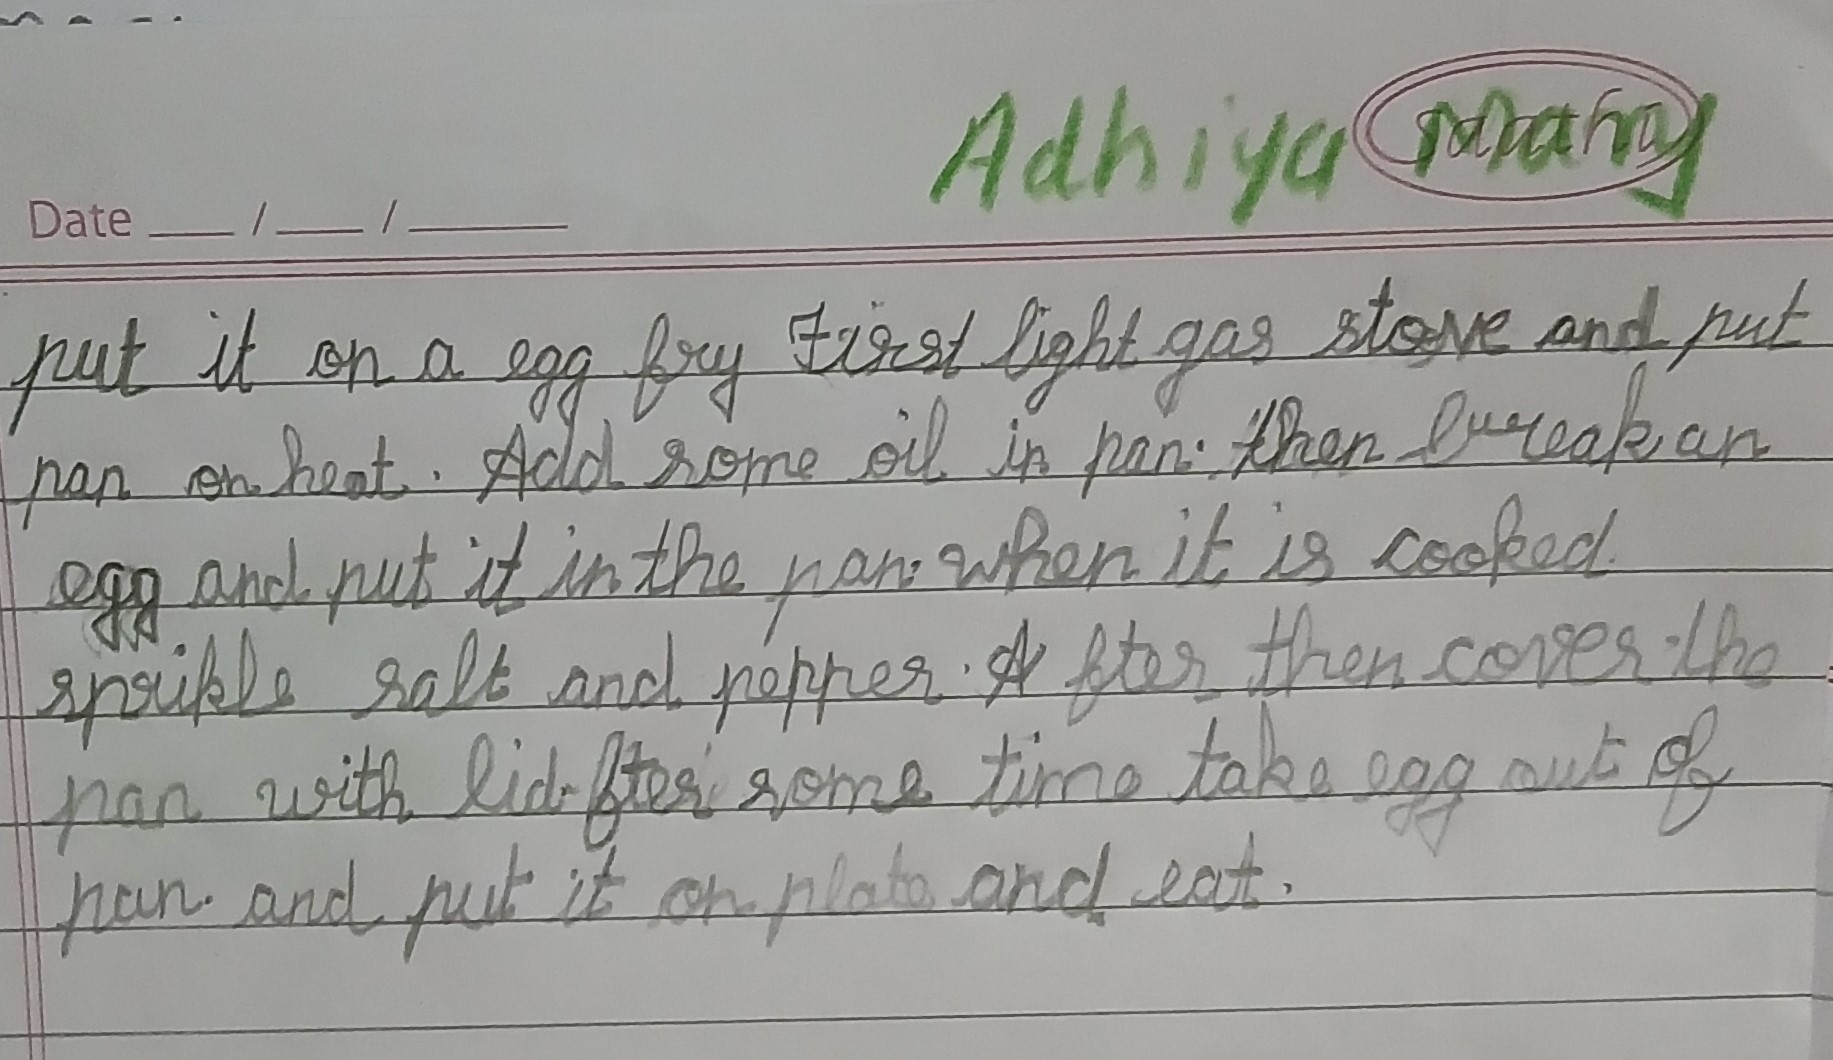 Adhiya
Date __ / __ / ____
put it on a egg fry First light gas stove and put
pan on heat. Add some oil in pan. then bureak an
egg and put it in the pan. when it is cooked.
sprikle salt and pepper. After then cover the
pan with lid. fter some time take egg out of
pan. and put it on plate and eat.